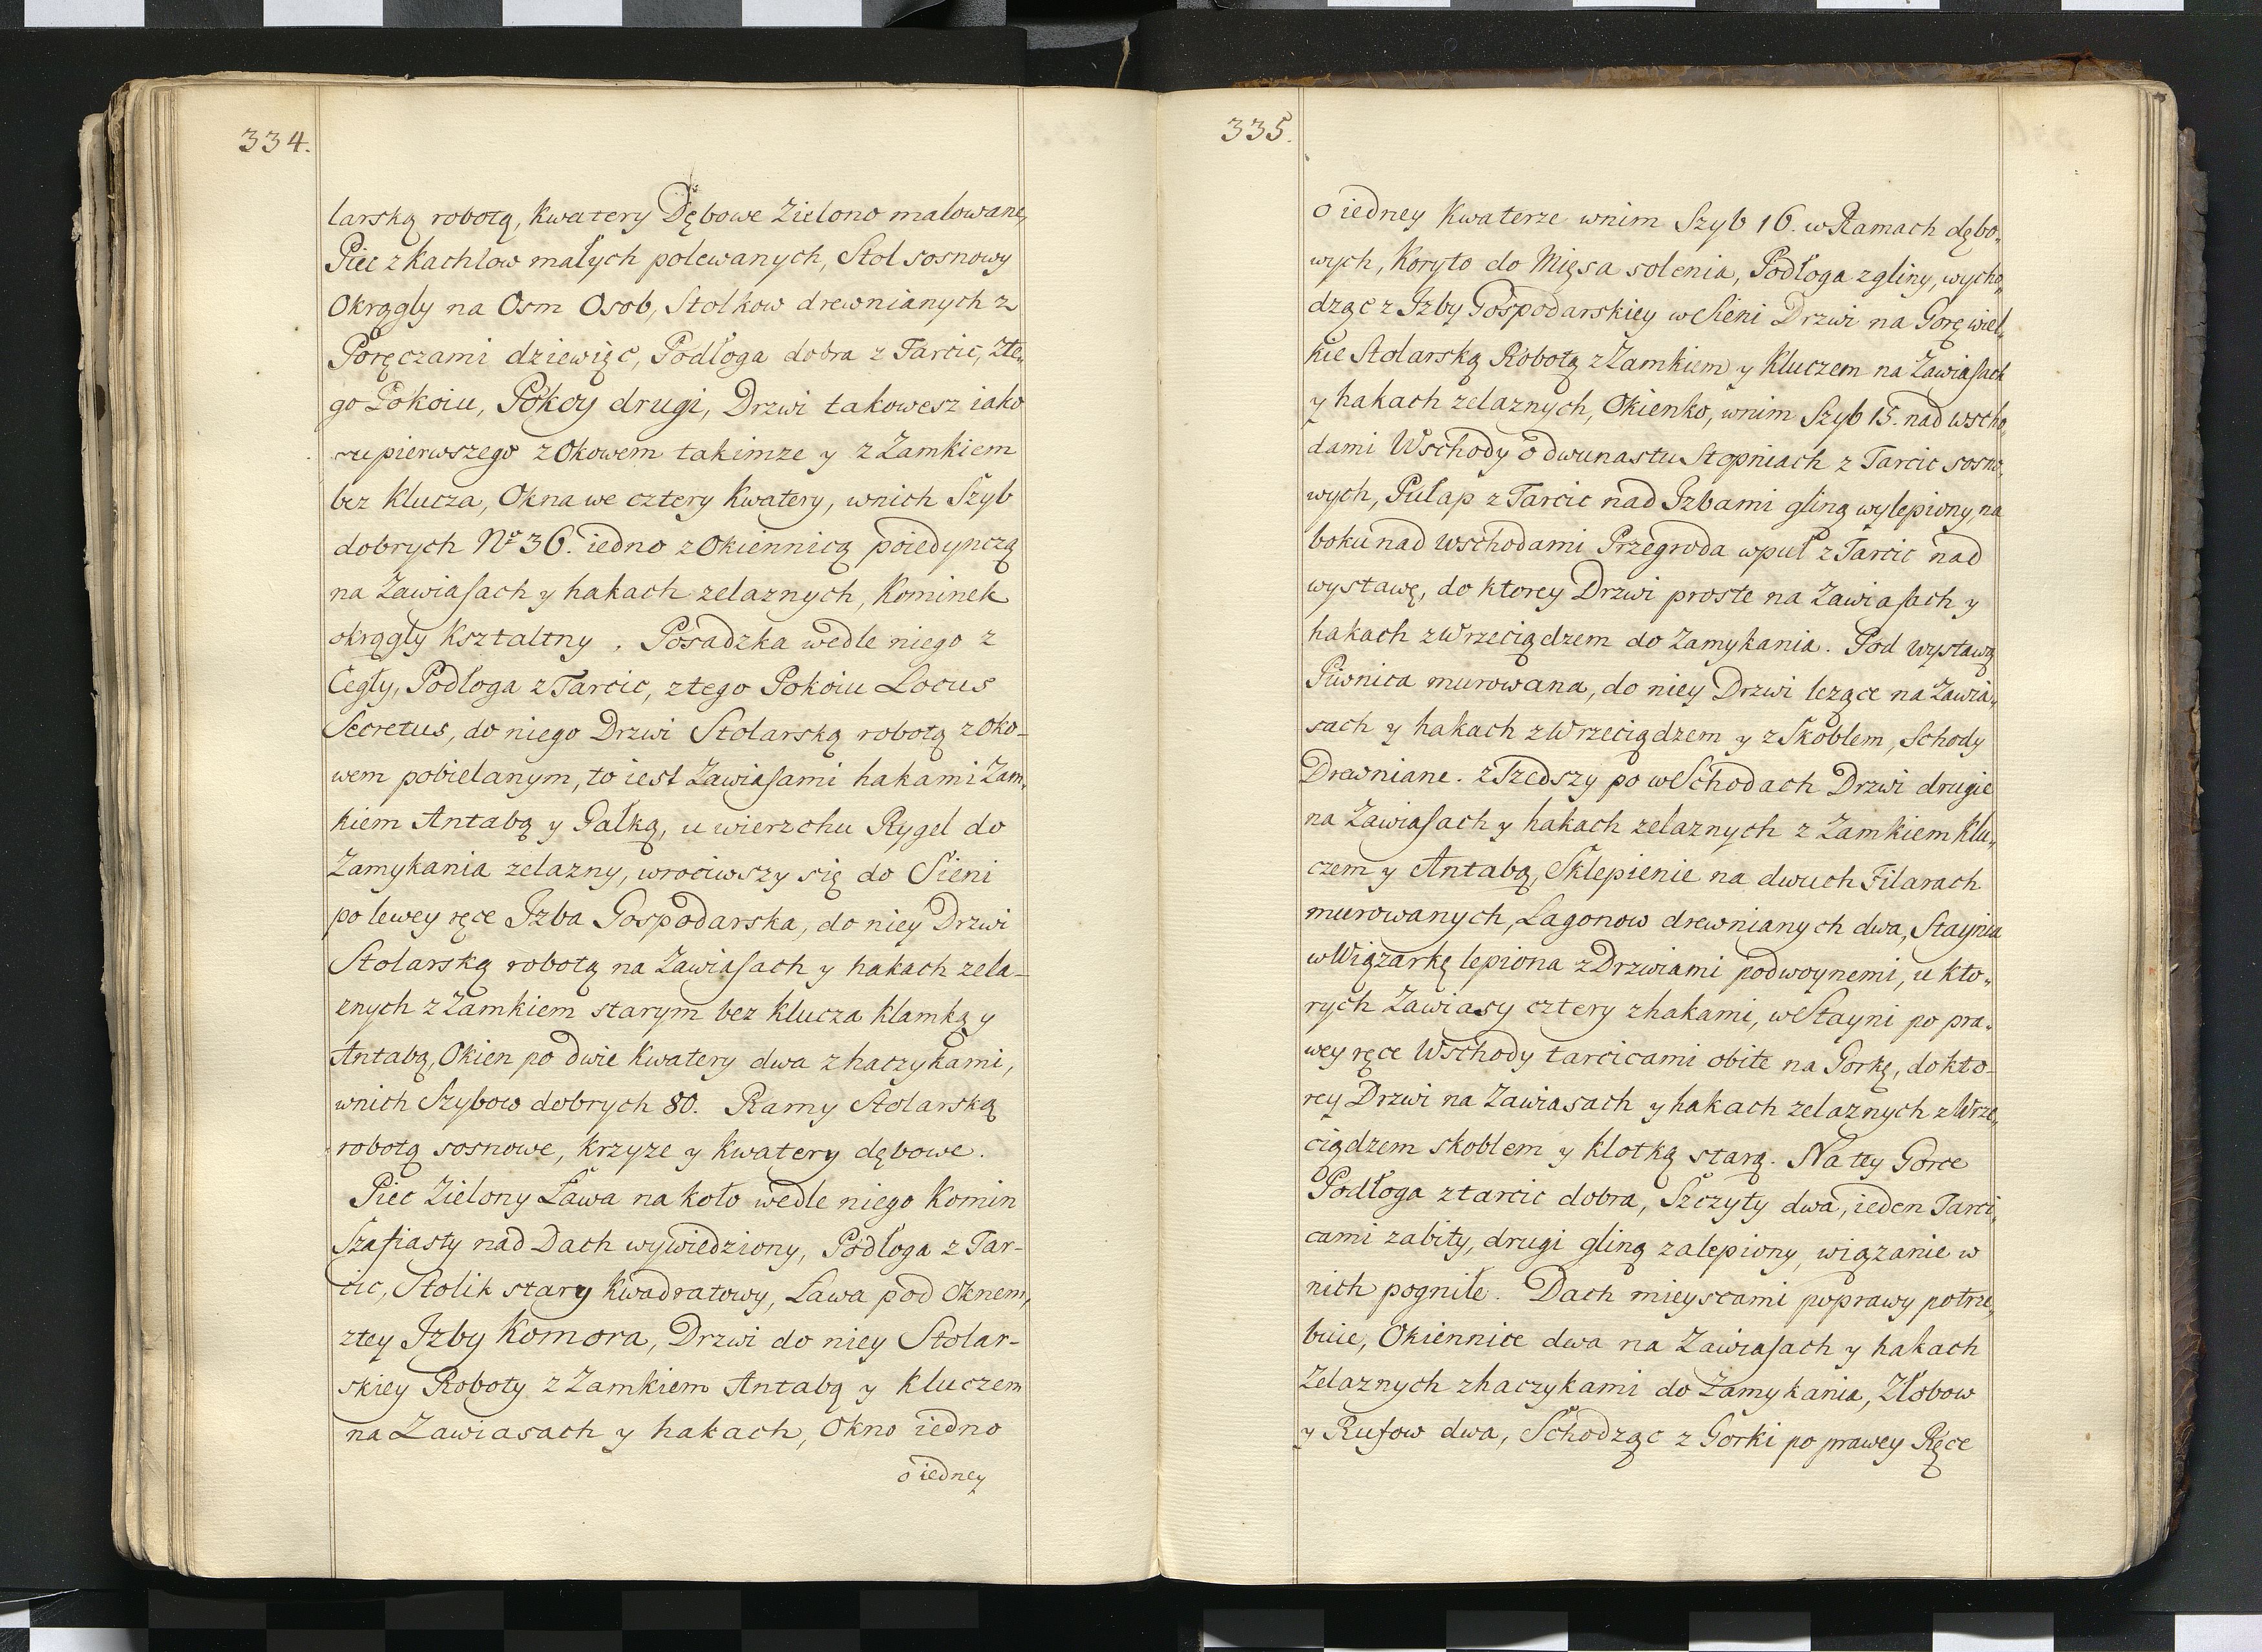 334.
larską robotą, Kwatery Dębowe Zielono malowane,
Piec z Kachlow małych polewanych, Stol sosnowy
Okrągły na Osm Osob, Stolkow drewnianych z
Poręczami dziewięc, Podłoga dobra z Tarcic, Zte„
go Pokoiu, Pokoy drugi, Drzwi takowesz iako
u pierwszego z Okowem takimze y z Zamkiem
bez Klucza, Okna we cztery Kwatery, wnich Szyb
dobrych No 36. iedno z Okiennicą poiedynczą
na Zawiasach y hakach zelaznych, Kominek
okrągły Kształtny, Posadzka wedle niego z
Cegły, Podłoga z Tarcic, ztego Pokoiu Locus
Secretus, do niego Drzwi Stolarską robotą z oko-
wem pobielanym, to iest Zawiasami hakami Zam„
kiem Antabą y Gałką, u wierzchu Rygel do
Zamykania zelazny, wrociwszy się do Sieni
po lewey ręce Izba Gospodarska, do niey Drzwi
Stolarską robotą na Zawiasach y hakach zela-
znych z Zamkiem starym bez klucza Klamką y
Antabą, Okien po dwie Kwatery dwa z haczykami,
wnich Szybow dobrych 80. Ramy Stolarską
robotą sosnowe, krzyze y Kwatery dębowe.
Piec Zielony Ława na koło wedle niego Komin
Szafiasty nad Dach wywiedziony, Podłoga z Tar-
cic, Stolik stary Kwadratowy, Lawa pod oknem,
ztey Izby Komora, Drzwi do niey Stolar-
skiey Roboty z Zamkiem Antabą y kluczem
na Zawiasach y hakach, Okno iedno
o iedney
335.
o iedney Kwaterze wnim Szyb 16. w Ramach dębo„
wych, Koryto do Mięsa solenia, Podłoga z gliny, wycho„
dząc z Izby Gospodarskiey w Sieni Drzwi na Gorę wiel„
kie Stolarską Robotą z Zamkiem y Kluczem na Zawiasach
y hakach zelaznych, Okienko, wnim Szyb 15. nad wscho„
dami Wschody o dwunastu Stopniach z Tarcic sosno„
wych, Pułap z Tarcic nad Izbami gliną wylepiony, na
boku nad wschodami Przegroda wpuł z Tarcic nad
wystawę, do ktorey Drzwi proste na Zawiasach y
hakach z Wrzeciądzem do Zamykania. Pod wystawą
Piwnica murowana, do niey Drzwi lezące na Zawia„
sach y hakach z Wrzeciądzem y z Skoblem, Schody
Drewniane. zszedszy po wSchodach Drzwi drugie
na Zawiasach y hakach zelaznych z Zamkiem Klu„
czem y Antabą, Sklepienie na dwuch Filarach
murowanych, Lagonow drewnianych dwa, Staynia
w Wiązarkę lepiona z Drzwiami podwoynemi, u kto„
rych Zawiasy cztery z hakami, w Stayni po pra„
wey ręce Wschody tarcicami obite na Gorkę, do kto-
rey Drzwi na Zawiasach y hakach zelaznych z Wrze„
ciądzem skoblem y Klotką starą. Na tey Gorce
Podłoga z tarcic dobra, Szczyty dwa, ieden Tarci„
cami zabity, drugi gliną zalepiony, wiązanie w
nich pogniłe. Dach mieyscami poprawy potrze„
buie, Okiennice dwa na Zawiasach y hakach
Zelaznych z haczykami do Zamykania, Złobow
y Rufow dwa, Schodząc z Gorki po prawey Ręce